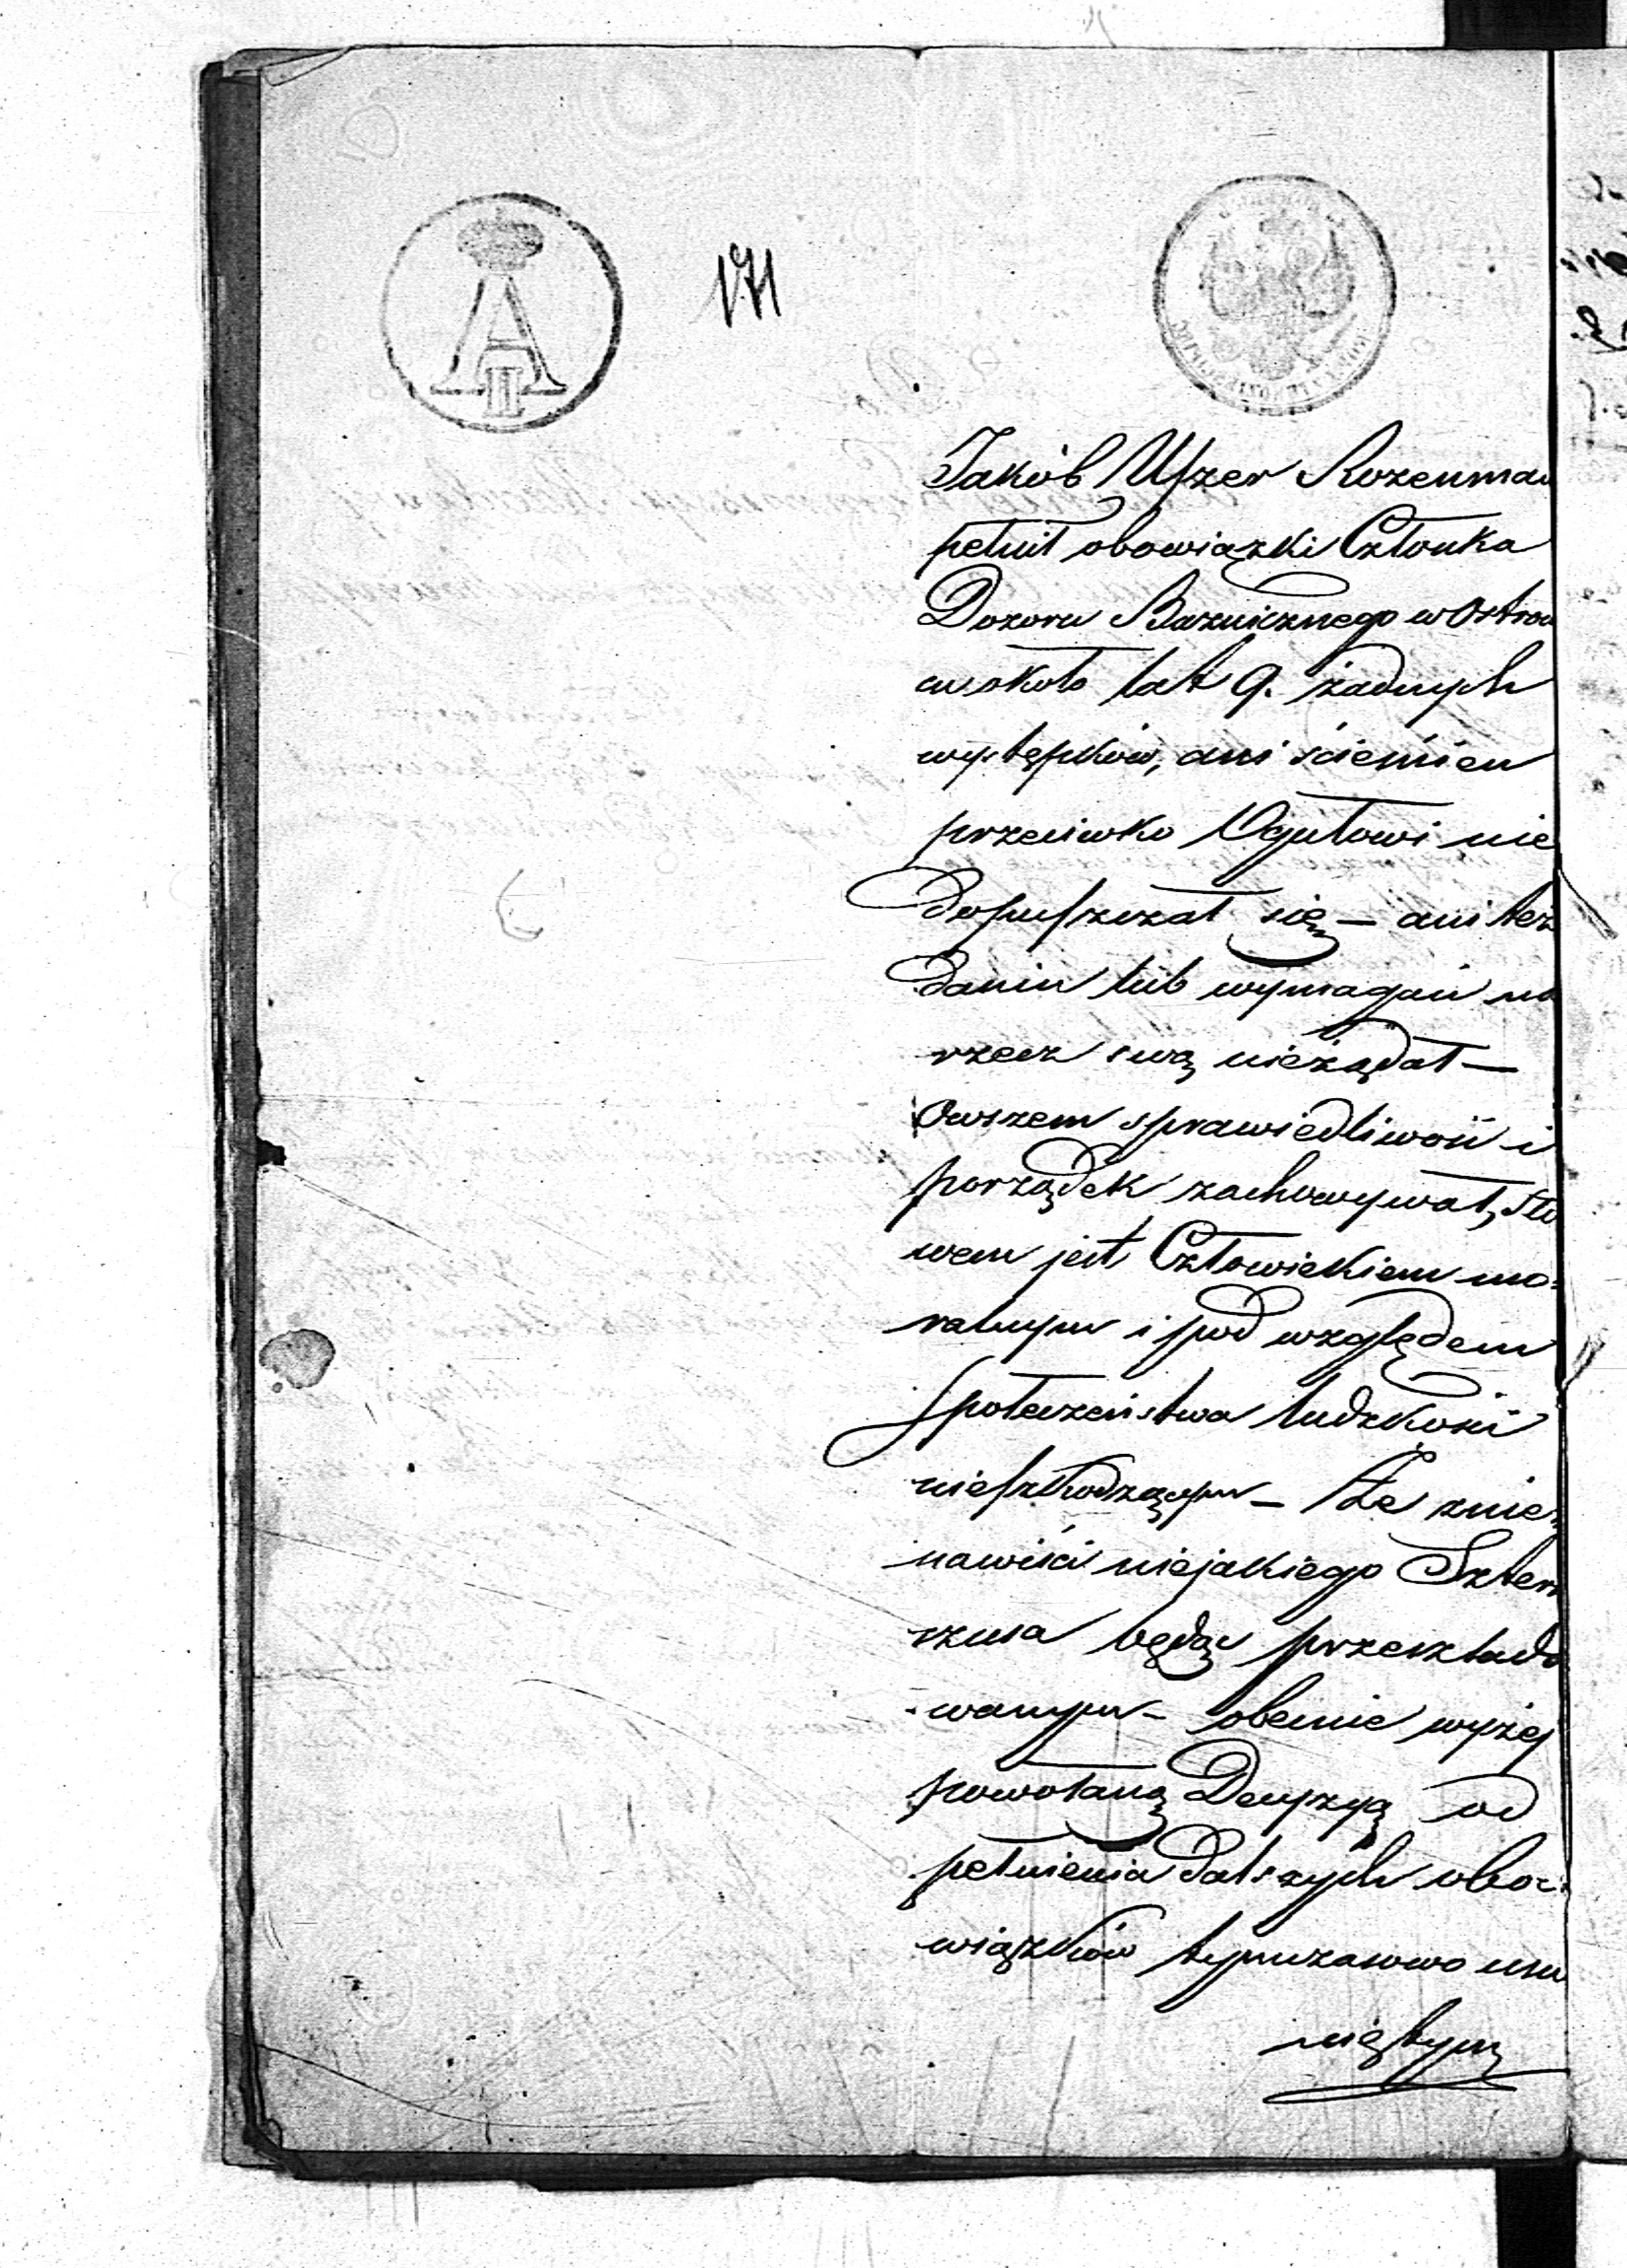 171
A
II
Jakób Uszer Rozenman
pełnił obowiązki Członka
Dozoru Bożnicznego w Ostrow
cu około lat 9. żadnych
występków, ani ściemien
przeciwko Ogułowi nie
dopuszczał się — ani też
danin lub wymagań na
rzecz swą nieżądał —
Owszem sprawiedliwość i
porządek zachowywał, sło
wem jest Człowiekiem mo=
ralnym i pod względem
społeczeństwa ludzkości
nieszkodzącym — Że znie=
nawiści niejakiego Sztern
szusa będąc przeszlado
wanym — obecnie wyżej
powołaną Decyzyą od
pełnienia dalszych obo=
wiązków tymczasowo usu
niętym